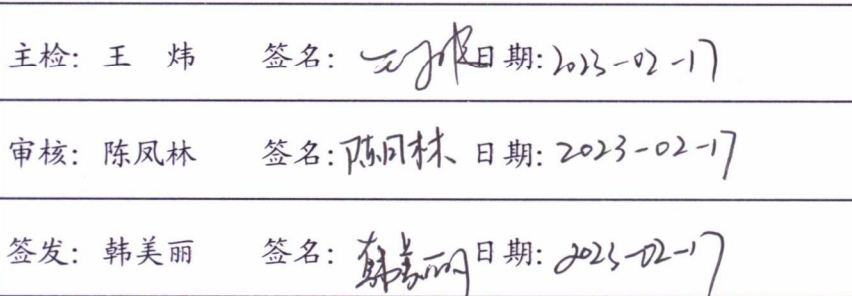 主检：王 炜 签名： 日期：2023-02-17
审核：陈凤林 签名：陈凤林 日期：2023-02-17
签发：韩美丽 签名：韩美丽 日期：2023-02-17